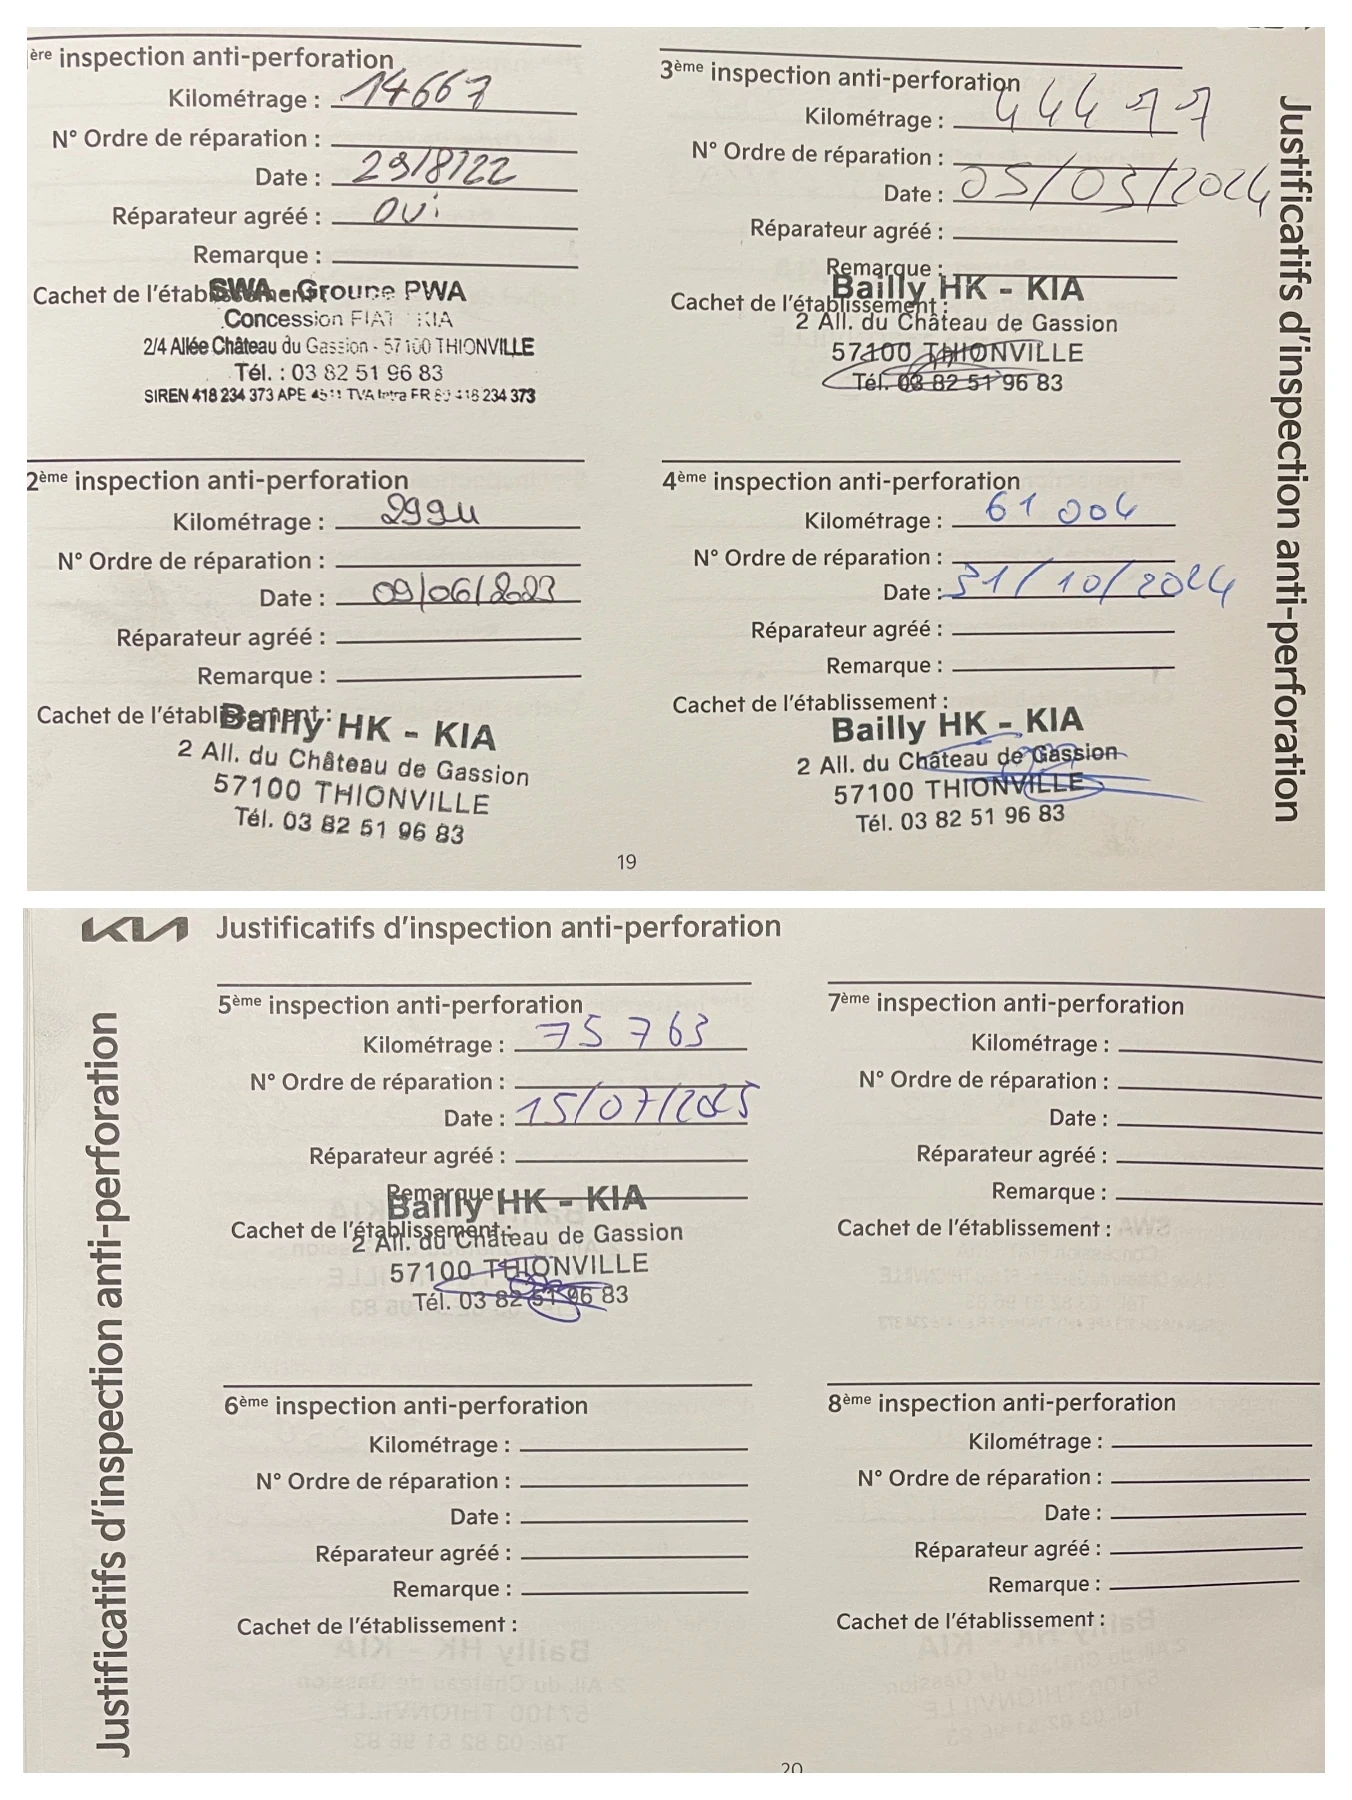 ère inspection anti-perforation
Kilométrage : 14667
N° Ordre de réparation :
Date : 29/8/22
Réparateur agréé : oui
Remarque :
Cachet de l'établissement :
SWA - Groupe PWA
Concession FIAT KIA
2/4 Allée Château du Gassion - 57100 THIONVILLE
Tél. : 03 82 51 96 83
SIREN 418 234 373 APE 4511 TVA Intra FR 418 234 373
2ème inspection anti-perforation
Kilométrage :
N° Ordre de réparation :
Date : 09/06/2023
Réparateur agréé :
Remarque :
Cachet de l'établissement :
Bailly HK - KIA
2 All. du Château de Gassion
57100 THIONVILLE
Tél. 03 82 51 96 83
3ème inspection anti-perforation
Kilométrage : 44477
N° Ordre de réparation :
Date : 05/03/2024
Réparateur agréé :
Remarque :
Cachet de l'établissement :
Bailly HK - KIA
2 All. du Château de Gassion
57100 THIONVILLE
Tél. 03 82 51 96 83
4ème inspection anti-perforation
Kilométrage : 61 004
N° Ordre de réparation :
Date : 31/10/2024
Réparateur agréé :
Remarque :
Cachet de l'établissement :
Bailly HK - KIA
2 All. du Château de Gassion
57100 THIONVILLE
Tél. 03 82 51 96 83
Justificatifs d'inspection anti-perforation
19
KIA Justificatifs d'inspection anti-perforation
Justificatifs d'inspection anti-perforation
5ème inspection anti-perforation
Kilométrage : 75 763
N° Ordre de réparation :
Date : 15/07/2025
Réparateur agréé :
Remarque :
Cachet de l'établissement :
Bailly HK - KIA
2 All. du Château de Gassion
57100 THIONVILLE
Tél. 03 82 51 96 83
6ème inspection anti-perforation
Kilométrage :
N° Ordre de réparation :
Date :
Réparateur agréé :
Remarque :
Cachet de l'établissement :
7ème inspection anti-perforation
Kilométrage :
N° Ordre de réparation :
Date :
Réparateur agréé :
Remarque :
Cachet de l'établissement :
8ème inspection anti-perforation
Kilométrage :
N° Ordre de réparation :
Date :
Réparateur agréé :
Remarque :
Cachet de l'établissement :
20